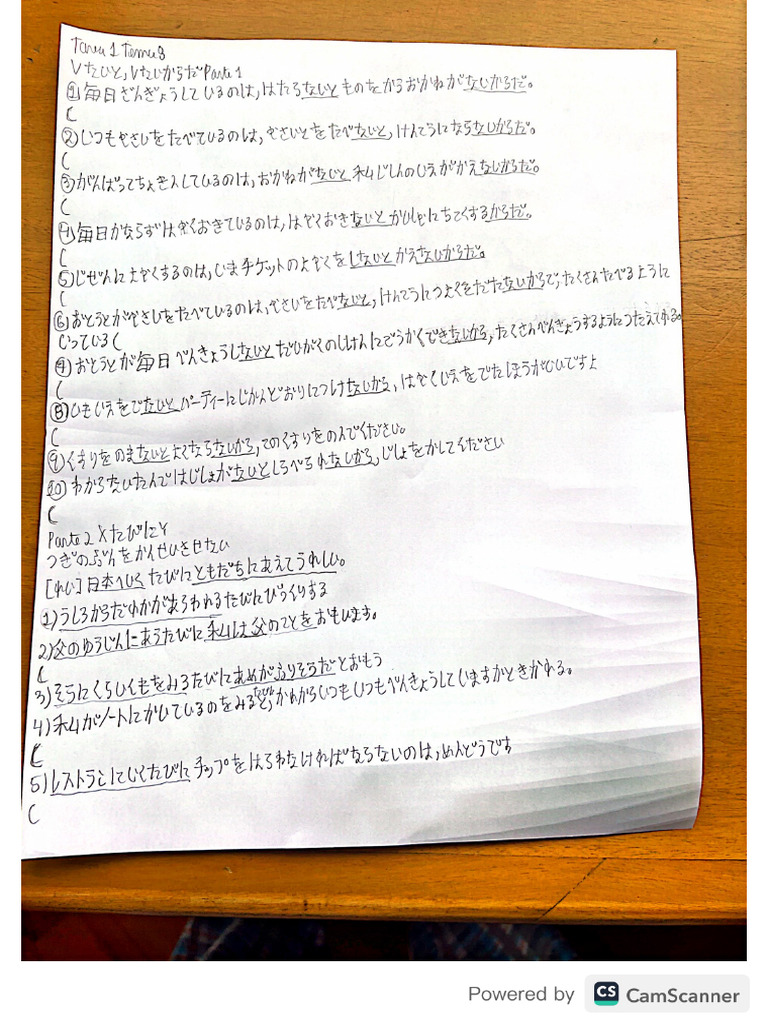 Tarea 1 Tema 8
Vないと, VないからだParte 1
①毎日ざんぎょうしているのは,はたらないとものをからおかねがないからだ。
(
②いつもやさいをたべているのは,やさいとをたべないと,けんこうにならないからだ。
(
③がんばってちょきんしているのは,おかねがないと私じしんのいえがかえないからだ。
(
④毎日かならずはやくおきているのは,はやくおきないと かいしゃにちこくするからだ。
(
⑤じぜんによやくするのは,いまチケットのよやくをしないとかえないからだ。
(
⑥おとうとがやさいをたべているのは,やさいをたべないと,けんこうにつよくをだたないからで,たくさんたべるように
いっている(
おとうとが毎日べんきょうしないとだいがくのしけんにごうかくできないから,たくさんべんきょうするようにつたえてれる。
(
⑧いもいえをでないとパーティーにじかんどおりにつけないから,はやくいえをでたほうがいいですよ
(
⑨くすりをのまないとよくならないから,このくすりをのんでください。
⑩わからないたんごはじしょがないとしらべられないから,じしょをかしてください
(
Parte 2 Xたびに Y
つぎのぶんをかんせいさせない
[れい]日本へいくたびにともだちにあえてうれしい。
1)うしろからだれかがあらわれるたびにびっくりする
2)父のゆうじんにあうたびに私は父のことをおもいます。
(
3)そらにくらいくもをみるたびにあめがふりそうだとおもう
4)私がノートにかいているのをみると,たびにかれからいつもいつもべんきょうしていますかときかれる。
(
5)レストランにいくたびにチップをはらわなければならないのは,めんどうです
(
Powered by CS CamScanner